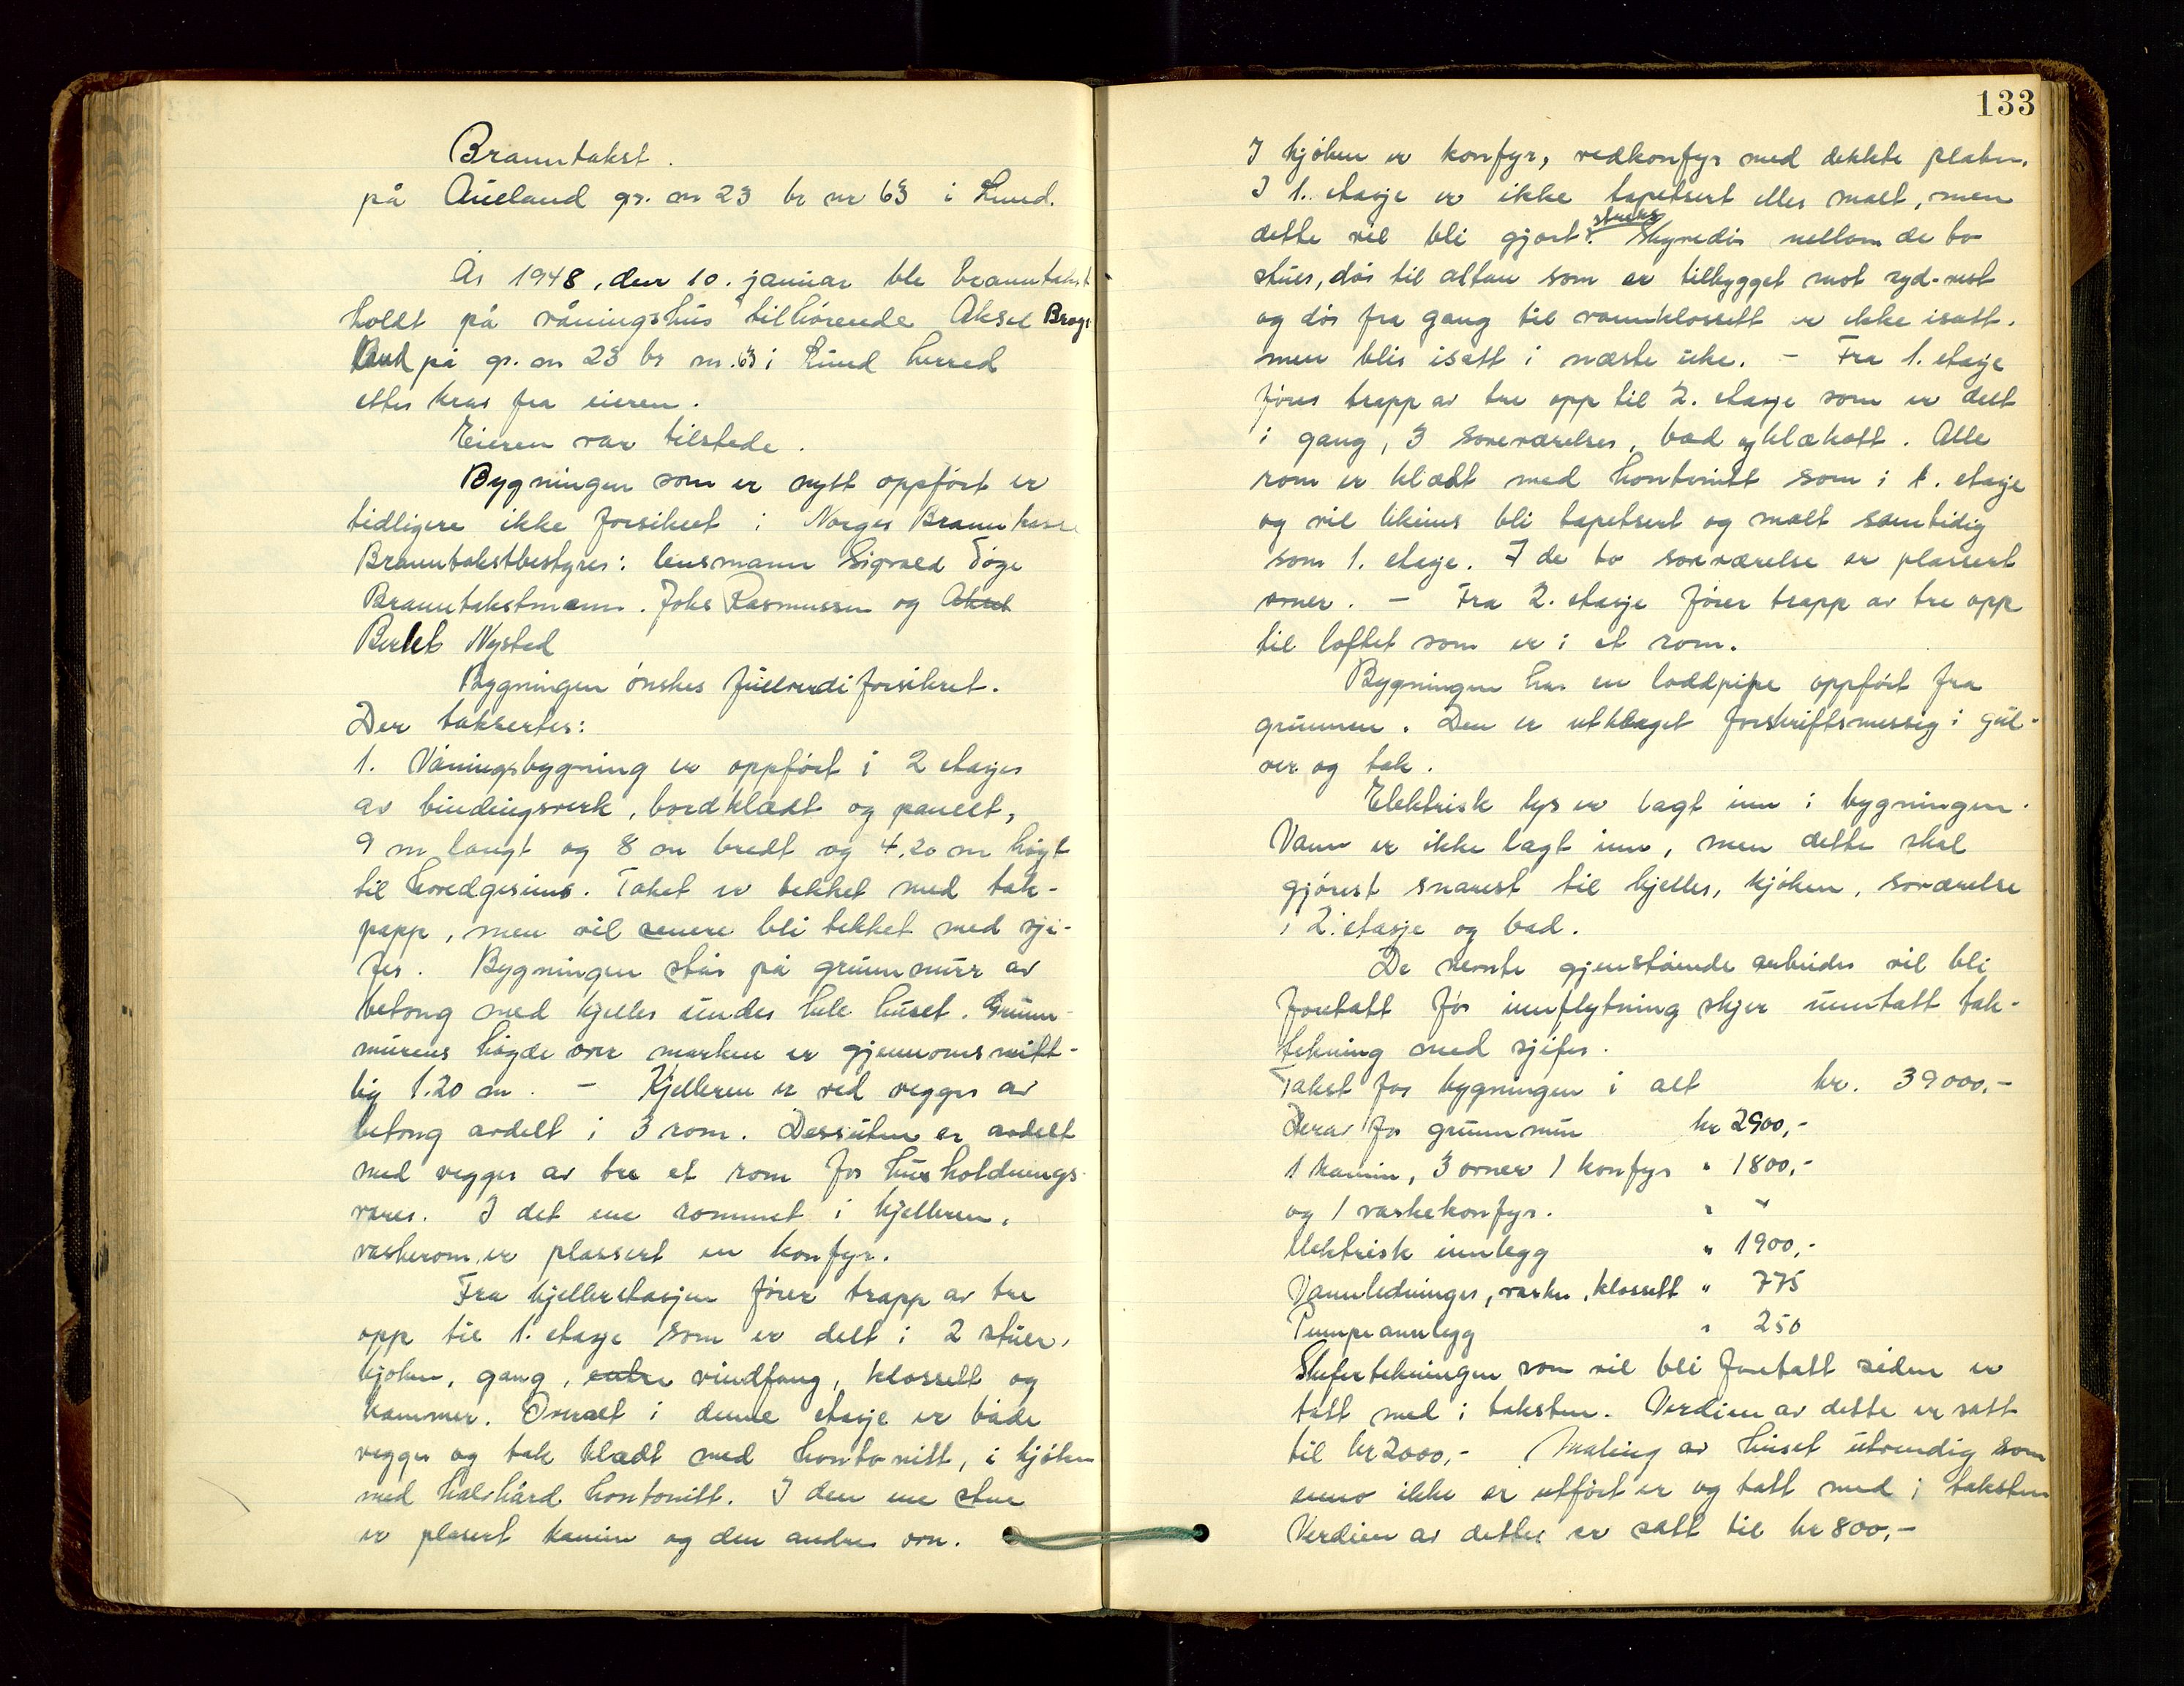 Branntakst.
på Aueland gr. nr 23 br nr 63 i Lund.
År 1948, den 10. januar ble branntakst
holdt på våningshus tilhørende Aksel
på gr. nr 23 br nr. 63 i Lund herred
etter krav fra eieren.
Eieren var tilstede.
Bygningen som er nytt oppført er
tidligere ikke forsikret i Norges Brannkasse
Branntakstbestyrer: lensmann Sigvald Tøge
Branntakstmenn. Johs Rasmussen og Aksel
Bertet Nysted
Bygningen ønskes fullverdiforsikret.
Der takseres:
1. Våningsbygning er oppført i 2 etasjer
av bindingsverk, bordklædt og panelt,
9 m langt og 8 m bredt og 4,20 m høgt
til hovedgesims. Taket er tekket med tak-
papp, men vil senere bli tekket med sji-
fer. Bygningen står på grunnmur av
betong med kjeller under hele huset. Grunn-
murens høgde over marken er gjennomsnitt-
lig 1.20 m. - Kjelleren er ved vegger av
betong avdelt i 3 rom. Dessuten er avdelt
med vegger av tre et rom for husholdnings-
varer. I det ene rommet i kjelleren,
vaskerom, er plassert en konfyr.
Fra kjelleretasjen fører trapp av tre
opp til 1. etasje som er delt i 2 stuer,
kjøken, gang, entre vindfang, klossett og
kammer. Overalt i denne etasje er både
vegger og tak klædt med hontonitt, i kjøken
med halvhård hontonitt. I den ene stue
er plasert kamin og den andre ovn.
133
I kjøken er konfyr, vedkonfyr med dekkte plater.
I 1. etasje er ikke tapetsert eller malt, men
straks
dette vil bli gjort. Skyvedør mellom de to
stuer, dør til altan som er tilbygget mot syd-vest
og dør fra gang til vannklossett er ikke isatt,
men blir isatt i næste uke. - Fra 1. etasje
fører trapp av tre opp til 2. etasje som er delt
i gang, 3 soveværelser, bad og klækott. Alle
rom er klædt med hontonitt som i 1. etasje
og vil likeins bli tapetsert og malt samtidig
som 1. etasje. I de to soveværelse er plassert
ovner. - Fra 2. etasje fører trapp av tre opp
til loftet som er i et rom.
Bygningen har en loddpipe oppført fra
grunnen. Den er utkraget forskriftsmessig i gul-
ver og tak.
Elektrisk lys er lagt inn i bygningen.
Vann er ikke lagt inn, men dette skal
gjørest snarest til kjeller, kjøken, soværelse
i 2. etasje og bad.
De nevnte gjenstående arbeider vil bli
foretatt før innflytning skjer unntatt tak-
tekning med sjifer.
Takst for bygningen i alt kr. 39000,-
Derav for grunnmur kr 2900,-
1 kamin, 3 ovner 1 konfyr " 1800,-
og 1 vaskekonfyr. " "
Elektrisk innlegg " 1900,-
Vannledninger, vasker, klossett " 775
Pumpeannlegg " 250
Skifertekningen som vil bli foretatt siden er
tatt med i taksten. Verdien av dette er satt
til kr 2000,- Maling av huset utvendig som
enno ikke er utført er og tatt med i taksten
Verdien av dette er satt til kr 800,-